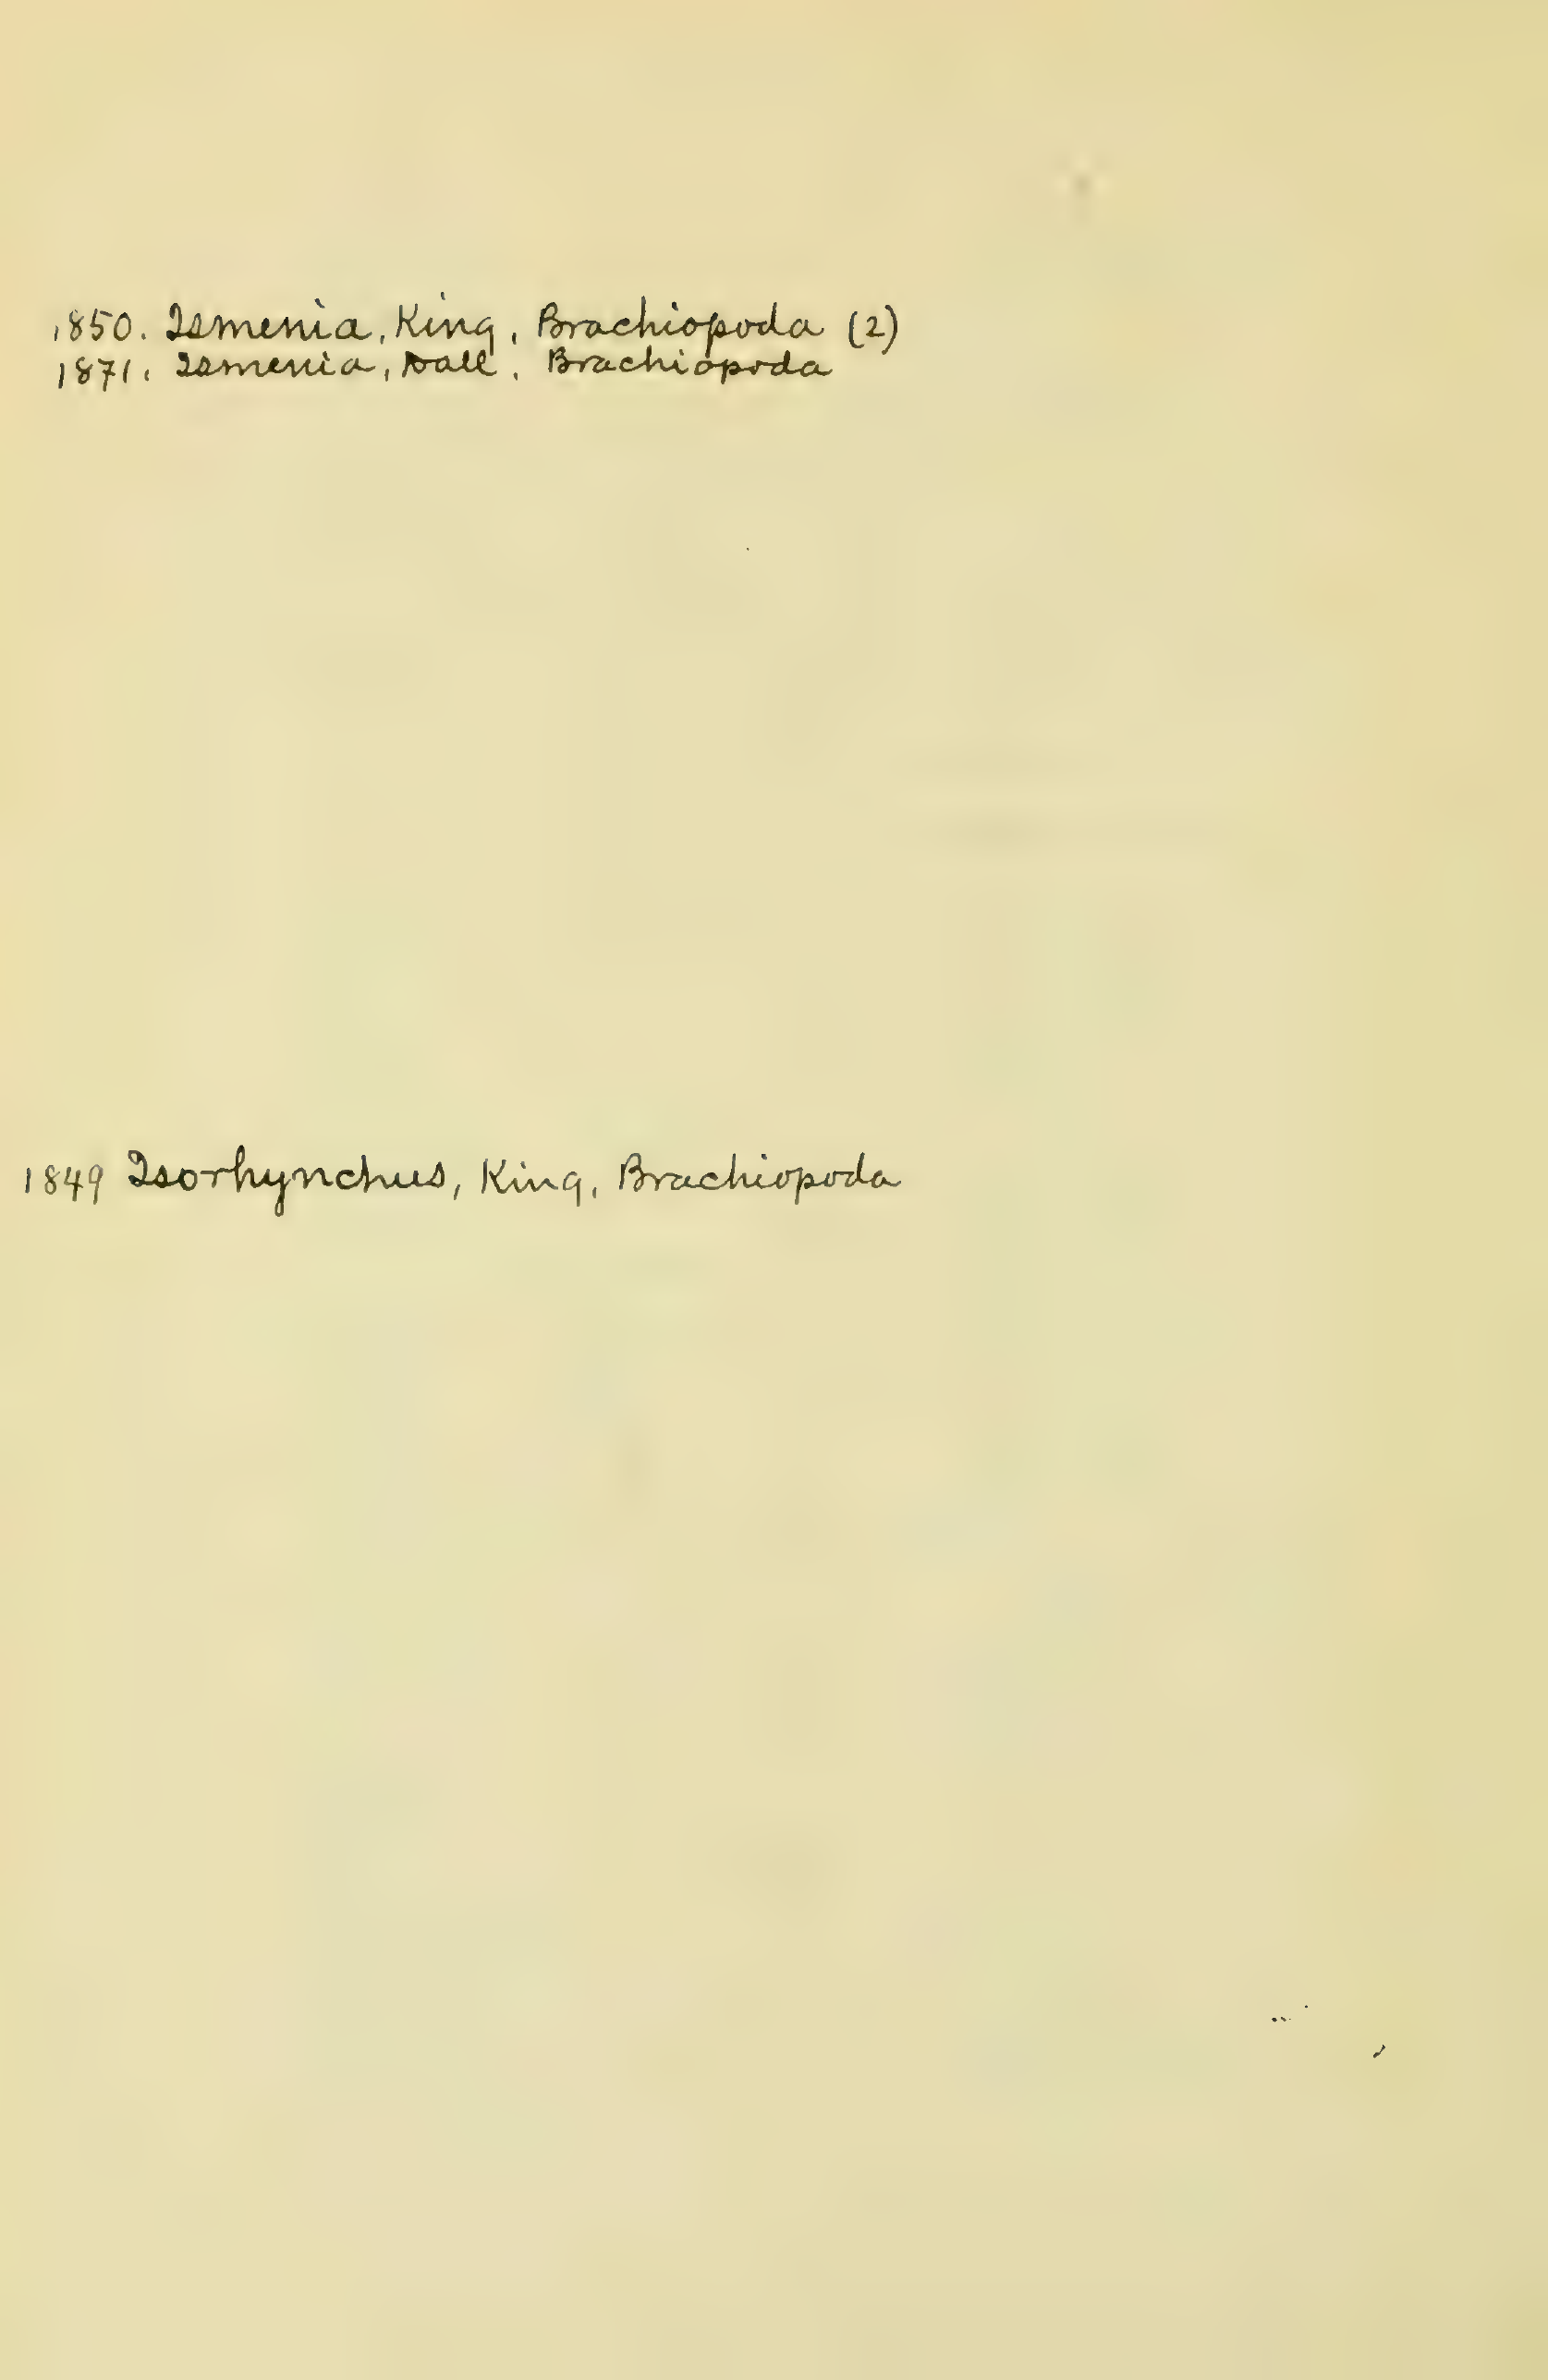 1850. Ismenia, King, Brachiopoda (2)
1871. Ismenia, Dall. Brachiopoda
1849 Isorhynchus, King, Brachiopoda